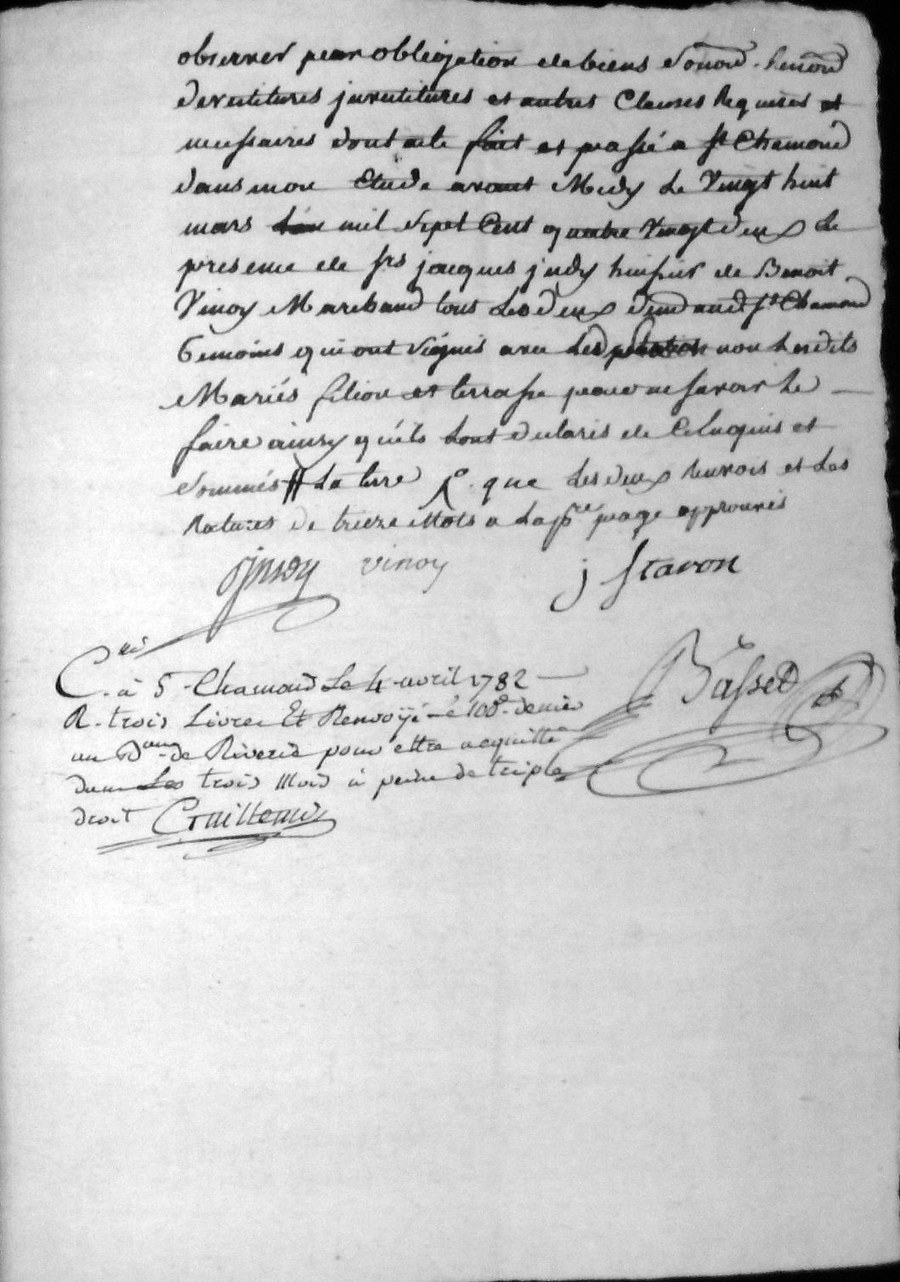 observer par obligation de biens soumon. renon
devestitures juvestitures et autres Clauses Requises et
necessaires dont acte fait et passé a St Chamond
dans mon Etude avant Midy Le Vingt huit
mars mil sept Cent quatre Vingt deux En
presence de srs jacques judy huissier de Benoit
Vinoy Marchand tous Les deux dud St Chamond
temoins qui ont signés avec non Lesdits
Mariés filion et terrasse pour ne savoir Le
faire ainsy qu'ils Lont declarés de Ce Enquis et
sommés La terre que Les deux Renvois et Les
Ratures de treize Mots a La pre page approuvés
Vinoy j Staron
C. à St Chamond Le 4 avril 1782
R. trois Livres Et Renvoyé Le 100e denier
au Bau de Riverie pour etre acquitté
dans Les trois Mois à peine de triple
droit Guillemin
Basset